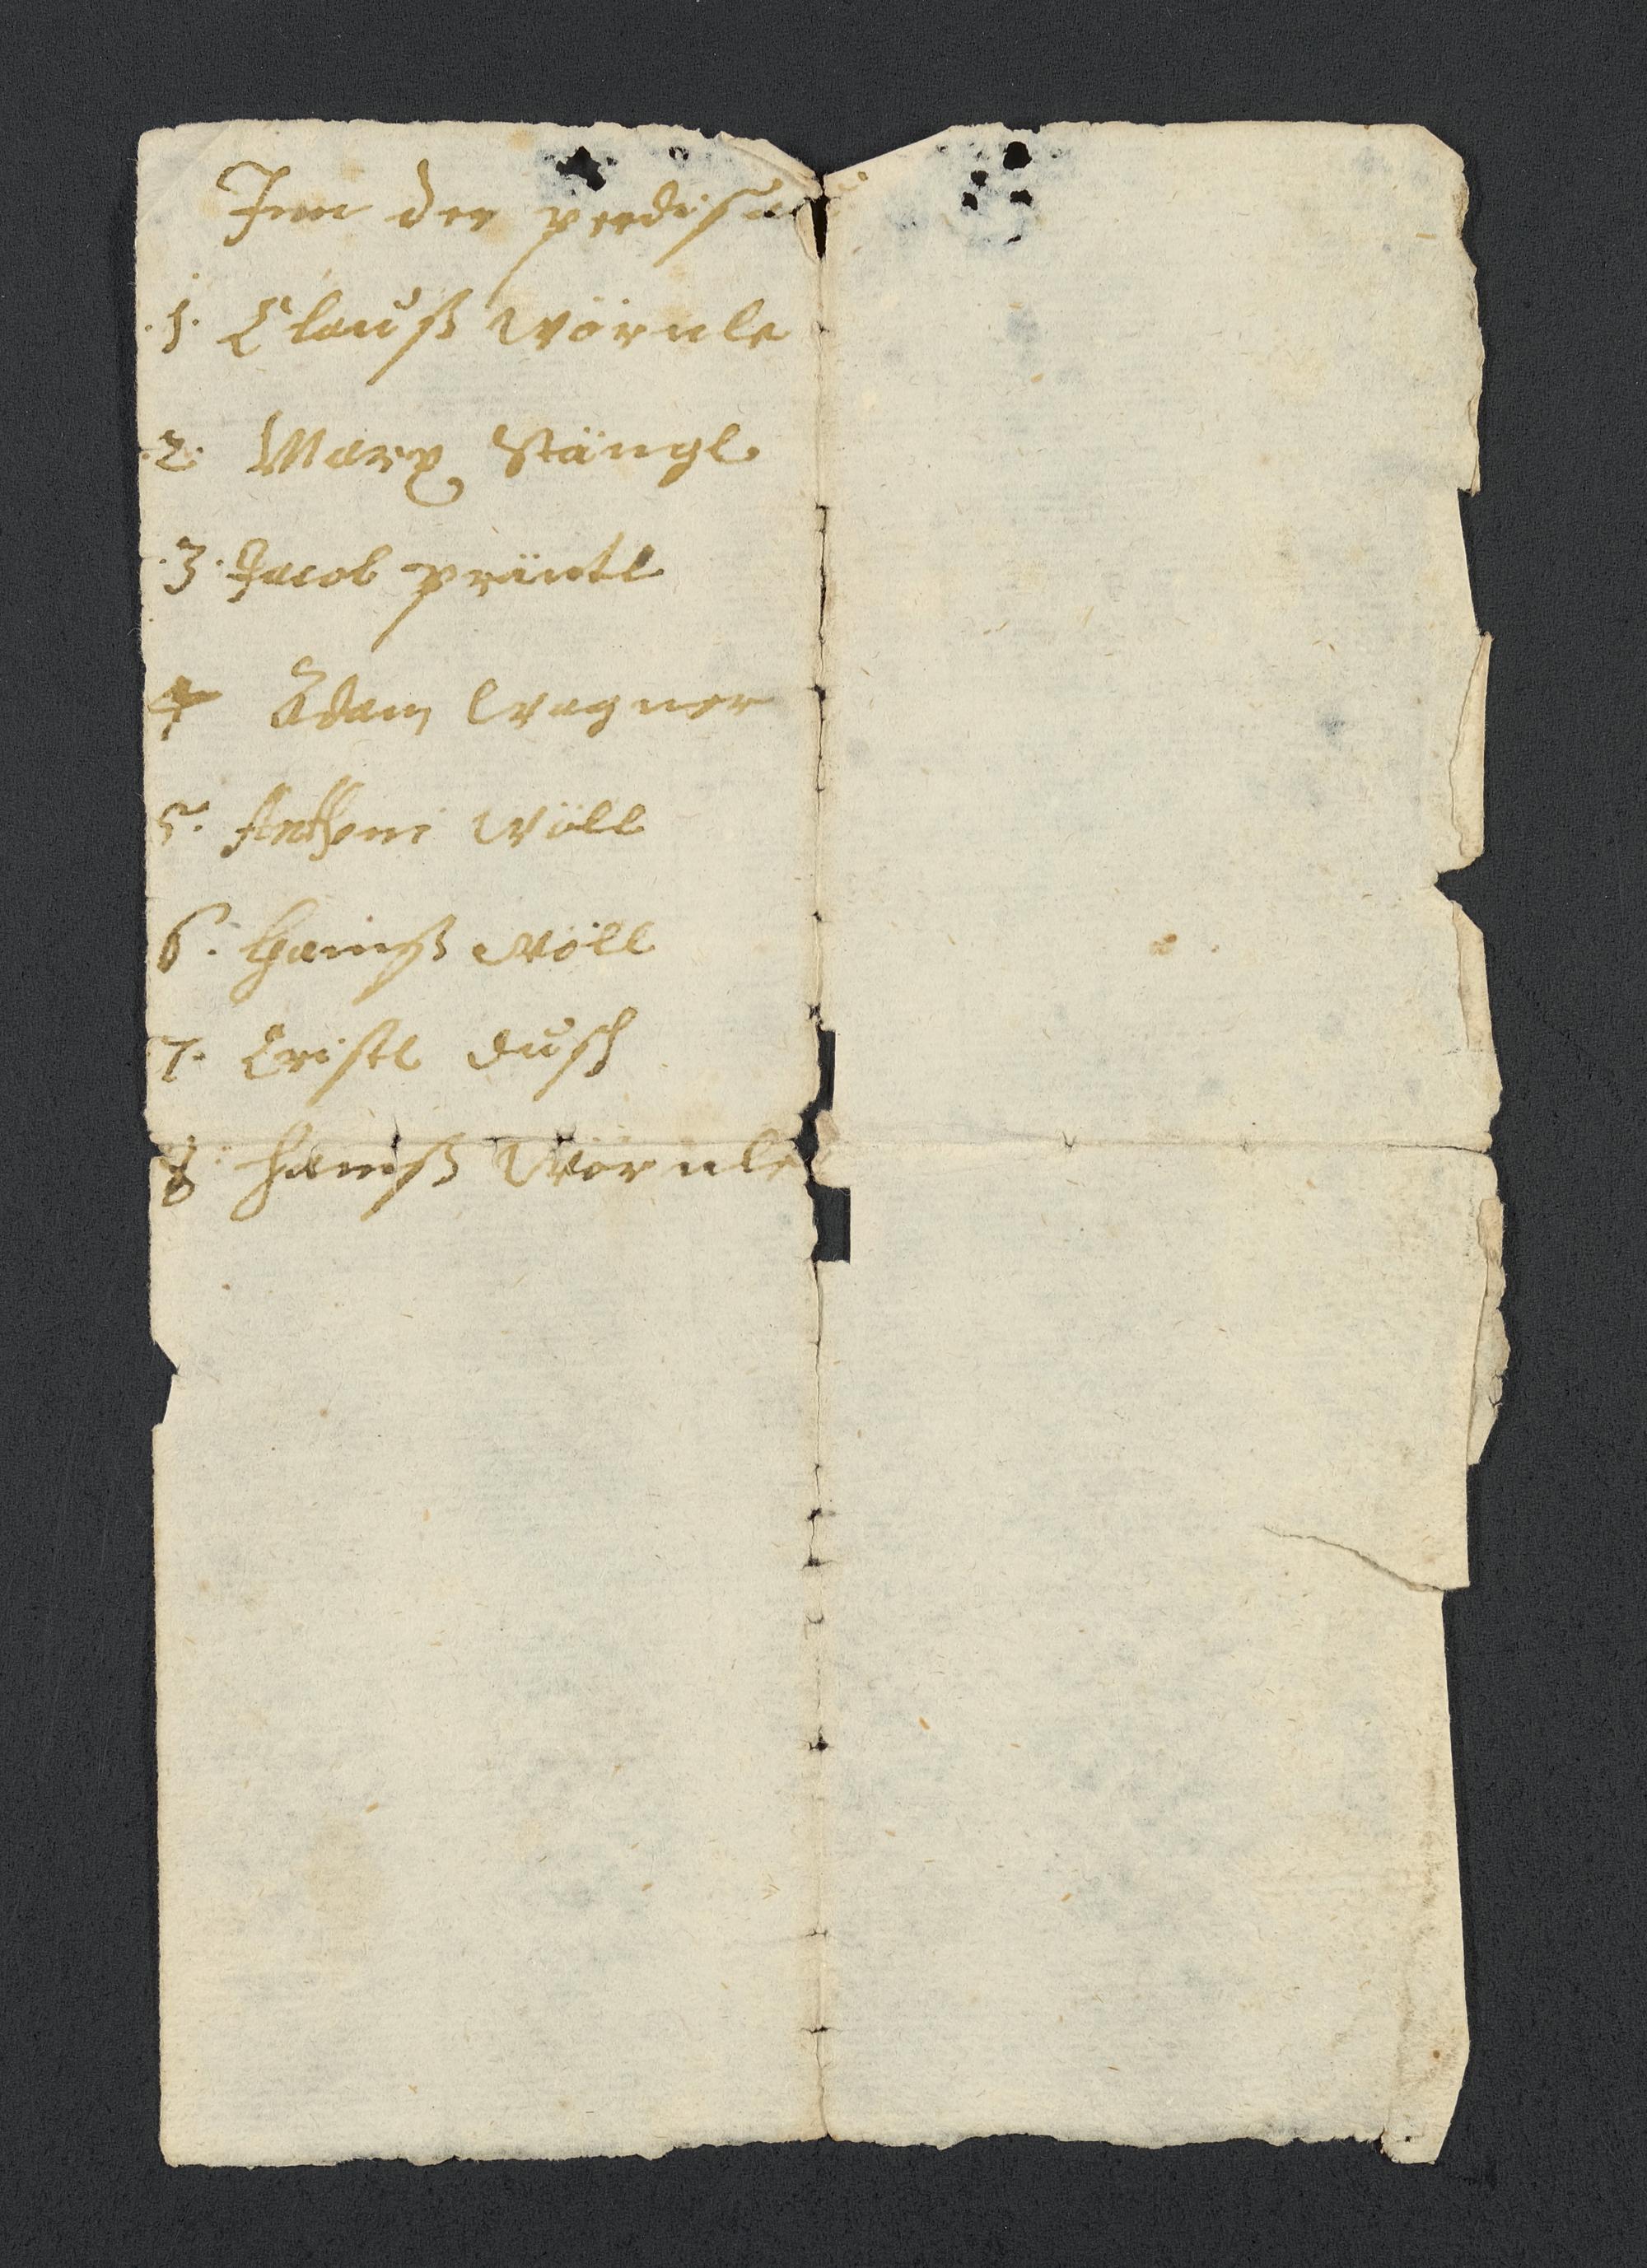 Inn der
.1. Clauß Wörnle
.2. Marx Stängl
.3. Jacob präntl
4 Adam Wagner
5. Anthoni Wöll
6. Hannß Wöll
7. Cristl Dusch
8. Hannß Wörnle